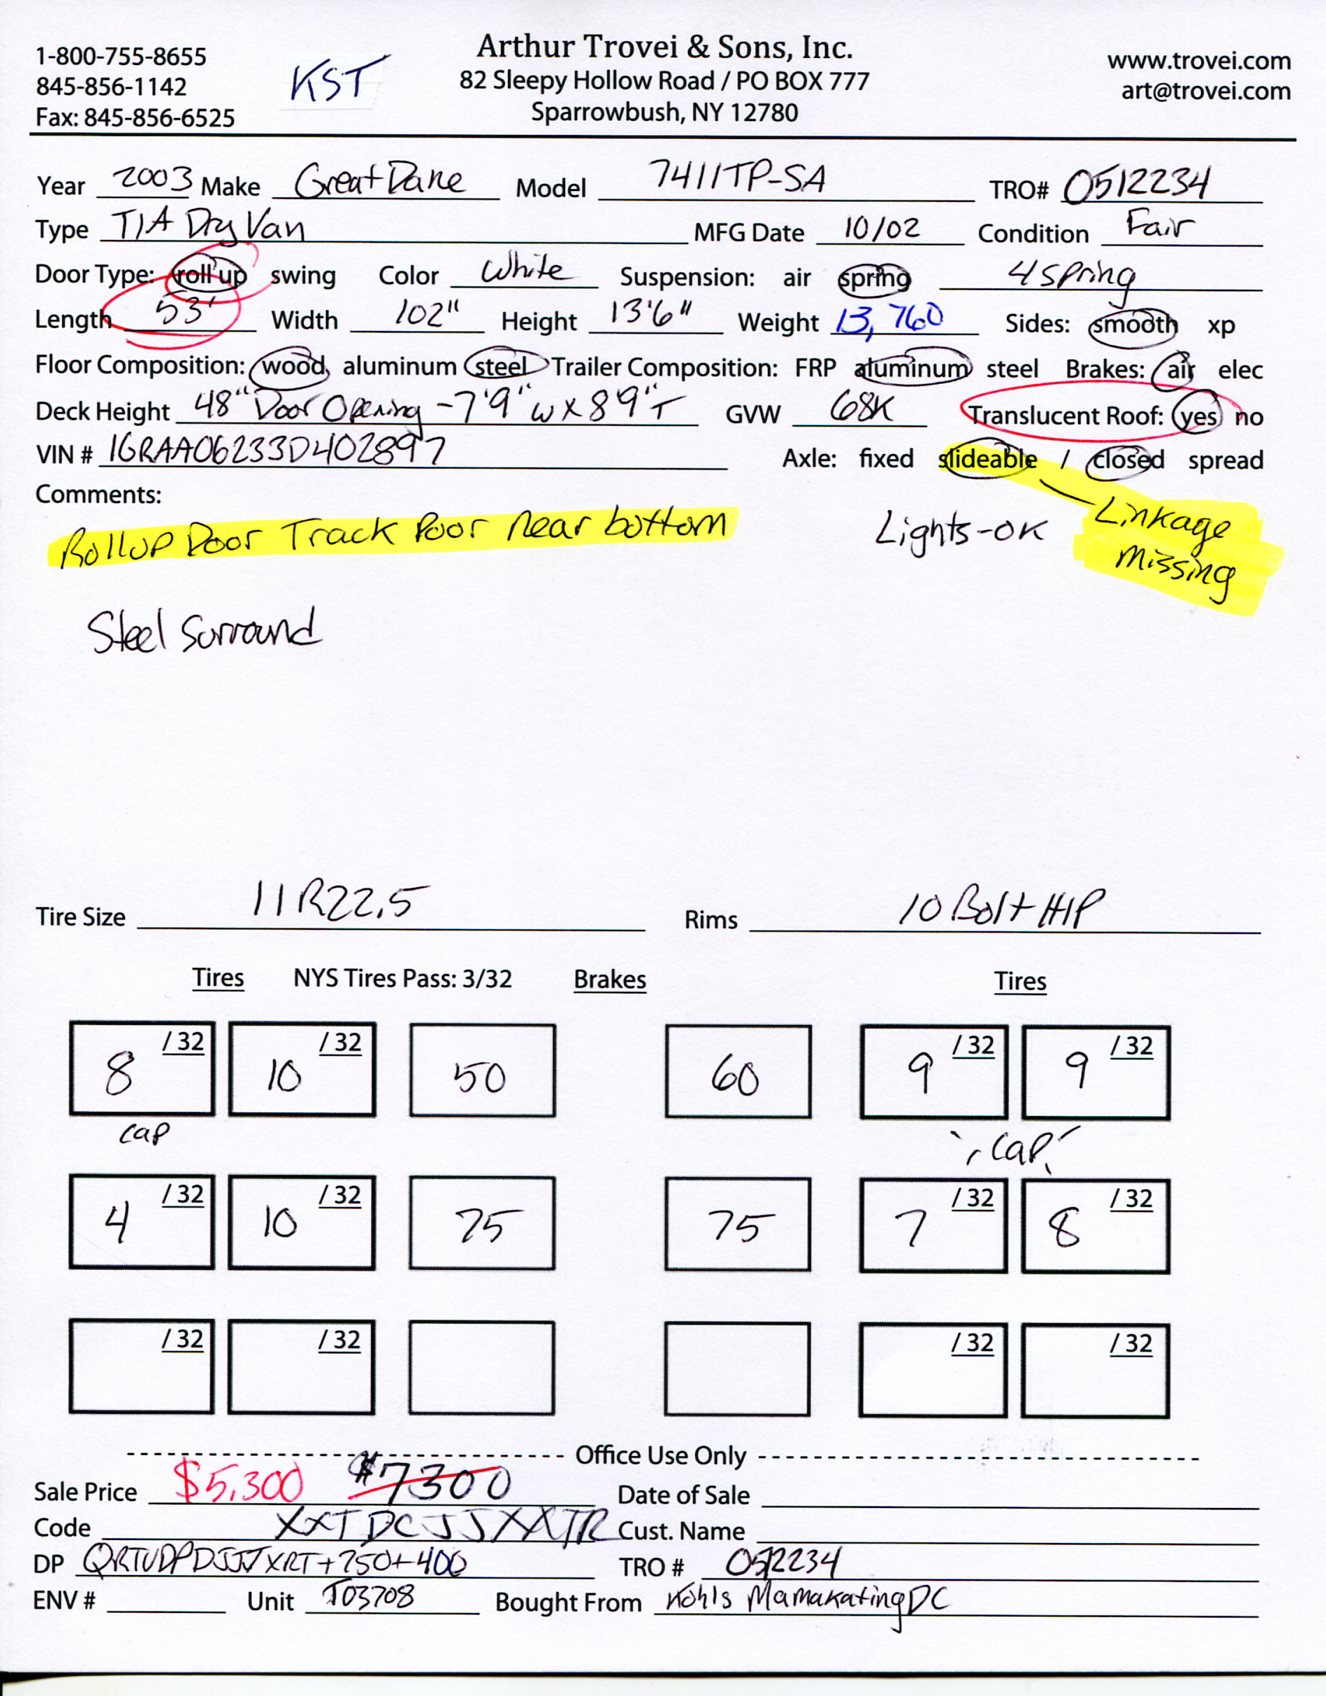 1-800-755-8655
845-856-1142
Fax: 845-856-6525
KST
Arthur Trovei & Sons, Inc.
82 Sleepy Hollow Road / PO BOX 777
Sparrowbush, NY 12780
www.trovei.com
art@trovei.com
Year 2003 Make Great Dane Model 7411TP-SA TRO# 0512234
Type T/A Dry Van MFG Date 10/02 Condition Fair
Door Type: roll up swing Color White Suspension: air spring 4 spring
Length 53' Width 102" Height 13'6" Weight 13,760 Sides: smooth xp
Floor Composition: wood aluminum steel Trailer Composition: FRP aluminum steel Brakes: air elec
Deck Height 48" Door Opening - 7'9" W X 8'9" T GVW 68K Translucent Roof: yes no
VIN # 1GRAA06233D402897 Axle: fixed slideable / closed spread
Comments:
Rollup Door Track Poor Near bottom Lights-OK Linkage
Missing
Steel Surround
Tire Size 11R22.5 Rims 10 Bolt HP
Tires NYS Tires Pass: 3/32 Brakes Tires
8 /32 10 /32 50 60 9 /32 9 /32
cap " cap "
4 /32 10 /32 75 75 7 /32 8 /32
/32 /32 /32 /32
Office Use Only
Sale Price $5,300 $7300 Date of Sale
Code XXTDCJJXXTR Cust. Name
DP QRTUDPDJJJXRT+250+400 TRO # 0512234
ENV # Unit T03708 Bought From Kohls Mamakating DC